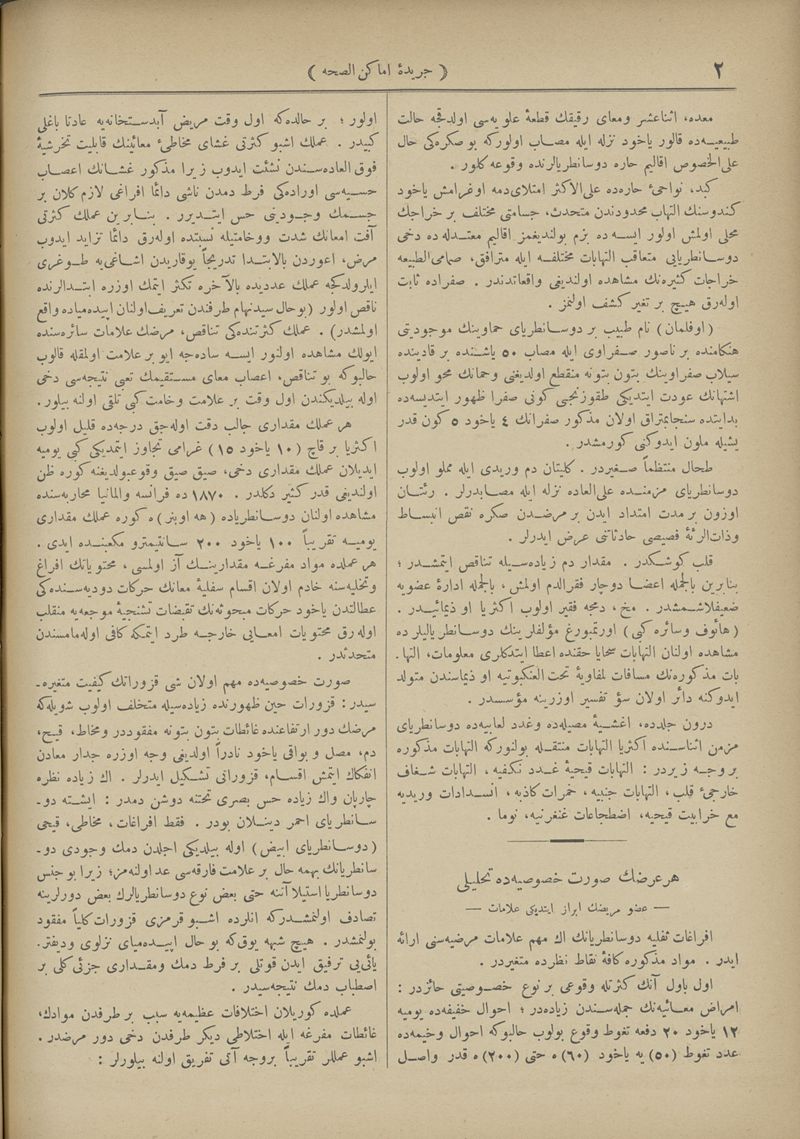 ٢
( جريدهٔ اماكن الصحه )
معده، اثناعشر ومعای رقيقك قطعهٔ علويه‌سی اولدقجه حالت
طبيعيه‌ده قالور ياخود نزله ايله مصاب اولوركه بوصكره‌كی حال
علی‌الخصوص اقاليم حاره دوسانطريالرنده وقوعه كلور .
كبد، نواحیٔ حاره‌ده علی‌الاكثر امتلای‌دمه اوغرامش ياخود
كندوسنك التهاب محدودندن متحدث، جسامتی مختلف بر خراجك
محلی اولمش اولور ايسه‌ده بزم بولنديغمز اقاليم معتدله‌ده دخی
دوسانطريایی متعاقب التهابات مختلفه ايله مترافق، صمامی‌الطبيعه
خراجات كثيره‌نك مشاهده اولنديغی واقعاتدندر . صفراده ثابت
اوله‌رق هيچ بر تغير كشف اولنمز .
(اوفلمان) نام طبيب بر دوسانطريای حماوينك موجوديتی
هنكامنده بر ناصور صفراوی ايله مصاب ٥٠ ياشنده بر قادينده
سيلاب صفراوينك بتون بتونه منقطع اولديغی وحمانك محو اولوب
اشتهانك عودت ايتديكی طقوزنجی كونی صفرا ظهور ايتديسه‌ده
بدايتده سنجابی‌تراق اولان مذكور صفرانك ٤ ياخود ٥ كون قدر
يشيله ملون ايدوكنی كورمشدر .
طحال منتظماً صغيردر . كليتان دم وريدی ايله مملو اولوب
دوسانطريای مزمنده علی‌العاده نزله ايله مصابدرلر . رئتان
اوزون برمدت امتداد ايدن بر مرضدن صكره نقص انبساط
وذات‌الرئهٔ فصيصی حادثاتنی عرض ايدرلر .
قلب كوشكدر . مقدار دم زياده‌سيله تناقص ايتمشدر ؛
بنابرين بالجمله اعضا دوچار فقرالدم اولمش ، بالجمله ادارهٔ عضويه
ضعيفلاشمشدر . مخ ، دمجه فقير اولوب اكثريا او ذيمائيدر .
(هائوف وسائره كبی) اورتمبورغ مؤلفلرينك دوسانطرياليلر ده
مشاهده اولنان التهابات سحايا حقنده اعطا ايتدكلری معلومات، التها‌ـ
بات مذكوره‌نك مسافات لمفاويهٔ تحت‌العنكبوتيه او ذيماسندن متولد
ايدوكنه دائر اولان سؤ تفسير اوزرينه مؤسسدر .
درون جلدده، اغشيهٔ مصليه‌ده وغدد لعابيه‌ده دوسانطريای
مزمن اثناسنده اكثريا التهابات منتقله بولنوركه التهابات مذكوره
بروجه زيردر : التهابات قيحيهٔ غدد نكفيه ، التهابات شغاف
خارجیٔ قلب ، التهابات جنبيه ، خمرات كاذبه ، انسدادات وريديه
مع خرابيت قيحيه، اضطجاعات غنغرنيه، نوما .
هرعرضك صورت خصوصيه‌ده تحليلی
— عضو مريضك ابراز ايتديكی علامات —
افراغات ثفليه دوسانطريانك اك مهم علامات مرضيه‌سنی ارائه
ايدر . مواد مذكوره كافهٔ نقاط نظرده متغيردر .
اول باول آنك كثرتله وقوعی بر نوع خصوصيتی حائزدر :
امراض معائيه‌نك جمله‌سندن زياده‌در ؛ احوال خفيفه‌ده يوميه
١٢ ياخود ٢٠ دفعه تغوط وقوع بولوب حالبوكه احوال وخيمه‌ده
عدد تغوط (٥٠) يه ياخود (٦٠) ه حتی (٢٠٠) ه قدر واصل
اولور ؛ بر حالده‌كه اول وقت مريض آبدستخانه‌يه عادتا باغلی
كبيدر . عملك اشبو كثرتی غشای مخاطیٔ معائينك قابليت تخرشيهٔ
فوق‌العاده‌سندن نشئت ايدوب زيرا مذكور غشانك اعصاب
حسيه‌سی اوراده‌كی فرط دمدن ناشی دائما افراغی لازم كلان بر
جسمك وجودينی حس ايتديرر . بنابرين عملك كثرتی
آفت امعانك شدت ووخامتيله نسبتده اوله‌رق دائما تزايد ايدوب
مرض، اعوردن بالابتدا تدريجاً يوقاريدن اشاغی‌يه طوغری
ايلرولدكجه عملك عددييده بالآخره تكثر ايتمك اوزره ابتدالرنده
ناقص اولور (بوحال سيدنهام طرفندن تعريف‌اولنان اپيده‌ميا‌ده واقع
اولمشدر) . عملك كثرتنده‌كی تناقص، مرضك علامات سائره‌سنده
ايولك مشاهده اولنور ايسه ساده‌جه ايو بر علامت اولمقله قالوب
حالبوكه بو تناقص، اعصاب معای مستقيمك تعبی نتيجه‌سی دخی
اوله بيلديكندن اول وقت بر علامت وخامت كبی تلقی اولنه بيلور.
هر عملك مقداری جالب دقت اوله‌جق درجه‌ده قليل اولوب
اكثريا بر قاچ (١٠ ياخود ١٥) غرامی تجاوز ايتمديكی كبی يوميه
ايديلان عملك مقداری دخی، صيق صيق وقوعبولديغنه كوره ظن
اولنديغی قدر كثير دكلدر . ١٨٧٠ ده فرانسه والمانيا محاربه‌سنده
مشاهده اولنان دوسانطرياده (هه اوبنر) ه كوره عملك مقداری
يوميه تقريباً ١٠٠ ياخود ٢٠٠ سانتيمترو مكعبنده ايدی .
هر عملده مواد مفرغه مقدارينك آز اولمسی ، محتوياتك افراغ
وتخليه‌سنه خادم اولان اقسام سفليهٔ معانك حركات دوديه‌سنده‌كی
عطالتدن ياخود حركات مبحوثه‌نك تقبضات تشنجيهٔ موجعه‌يه منقلب
اوله‌رق محتويات امعایی خارجه طرد ايتمكه كافی اوله‌مامسندن
متحدثدر .
صورت خصوصيه‌ده مهم اولان شی قزوراتك كيفيت متغيره‌ـ
سيدر : قزورات حين ظهورنده زياده‌سيله متخلف اولوب شويله‌كه
مرضك دور ارتفاعنده غائطات بتون بتونه مفقوددر ومخاط ، قيح،
دم، مصل و بواقی ياخود نادراً اولديغی وجه اوزره جدار معادن
انفكاك ايتمش اقسام، قزوراتی تشكيل ايدرلر . اك زياده نظره
چارپان واك زياده حس بصری تحتنه دوشن دمدر : ايشته دو‌ـ
سانطريای احمر دينلان بودر . فقط افراغات ، مخاطی، قيحی
(دوسانطريای ابيض) اوله بيلديكی اجلدن دمك وجودی دو‌ـ
سانطريانك بهمه حال بر علامت فارقه‌سی عد اولنه‌مز؛ زيرا بوجنس
دوسانطريا استيلا آننه حتی بعض نوع دوسانطريالرك بعض دورلرينه
تصادف اولنمشدركه انلرده اشبو قرمزی قزورات كلياً مفقود
بولنمشدر . هيچ شبهه يوق‌كه بوحال اپيده‌ميای نزلوی وديفتر‌ـ
يائی‌يی ترفيق ايدن قوتلی بر فرط دمك ومقداری جزئی كلی بر
اصطباب دمك نتيجه‌سيدر .
عملده كوريلان اختلافات عظيمه‌يه سبب بر طرفدن موادك،
غائطات مفرغه ايله اختلاطی ديكر طرفدن دخی دور مرضدر .
اشبو عمللر تقريباً بروجه آتی تفريق اولنه بيلورلر :